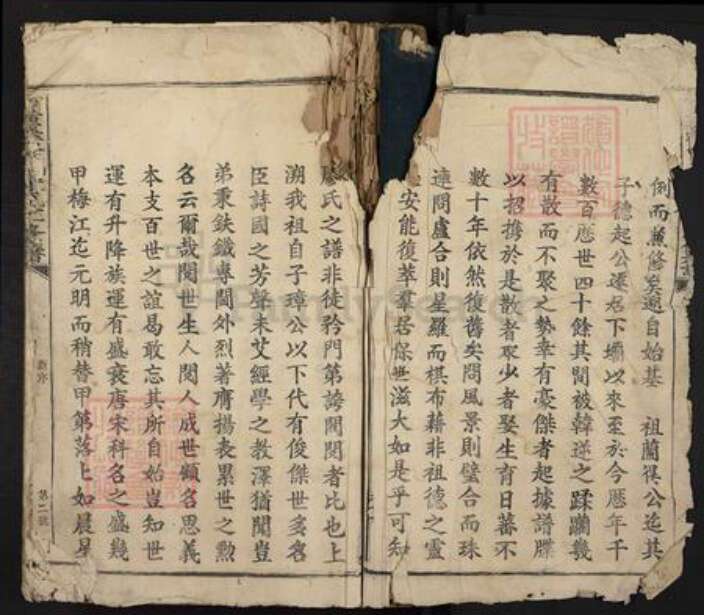 例而兼修矣迺自始基　祖蘭俱公迄其
子德起公遷居下壩以來至於今歷年千
數百歷世四十餘其間被韓逆之蹂躪幾
有散而不聚之勢幸有豪傑者起據譜牒
以招攜於是散者聚少者娶生育日蕃不
數十年依然復舊矣問風景則璧合而珠
連問廬合則星羅而棋布藉非祖德之靈
安能復萃羣居保世滋大如是乎可知
廖氏之譜非徒矜門第誇閥閱者比也上
溯我祖自子璋公以下代有俊傑世多名
臣詩國之芳聲未艾經學之教澤猶聞豈
弟秉鈇鐵專閫外烈著膚揚表累世之勲
名云爾哉閱世生人閱人成世顧名思義
本支百世之誼曷敢忘其所自始豈知世
運有升降族運有盛衰唐宋科名之盛幾
甲梅江迄元明而稍替甲第落上如晨星
新序
第二號
FamilySearch